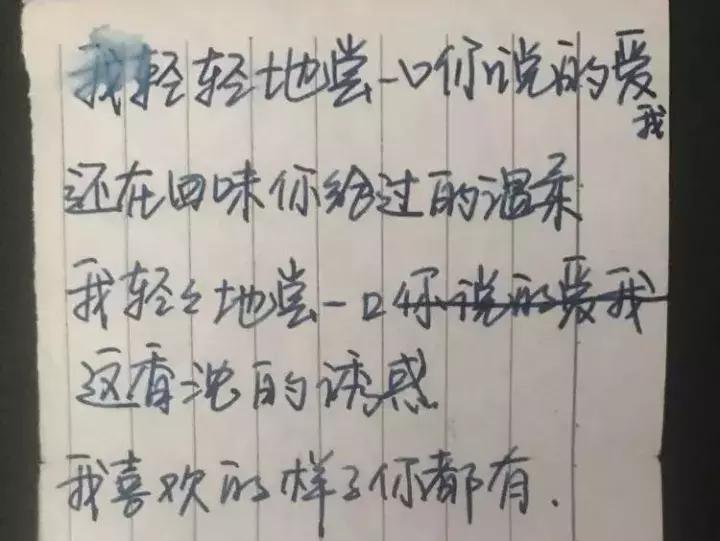 我轻轻地尝一口你说的爱我
还在回味你给过的温柔
我轻轻地尝一口你说的爱我
这香浓的诱惑
我喜欢的样子你都有.